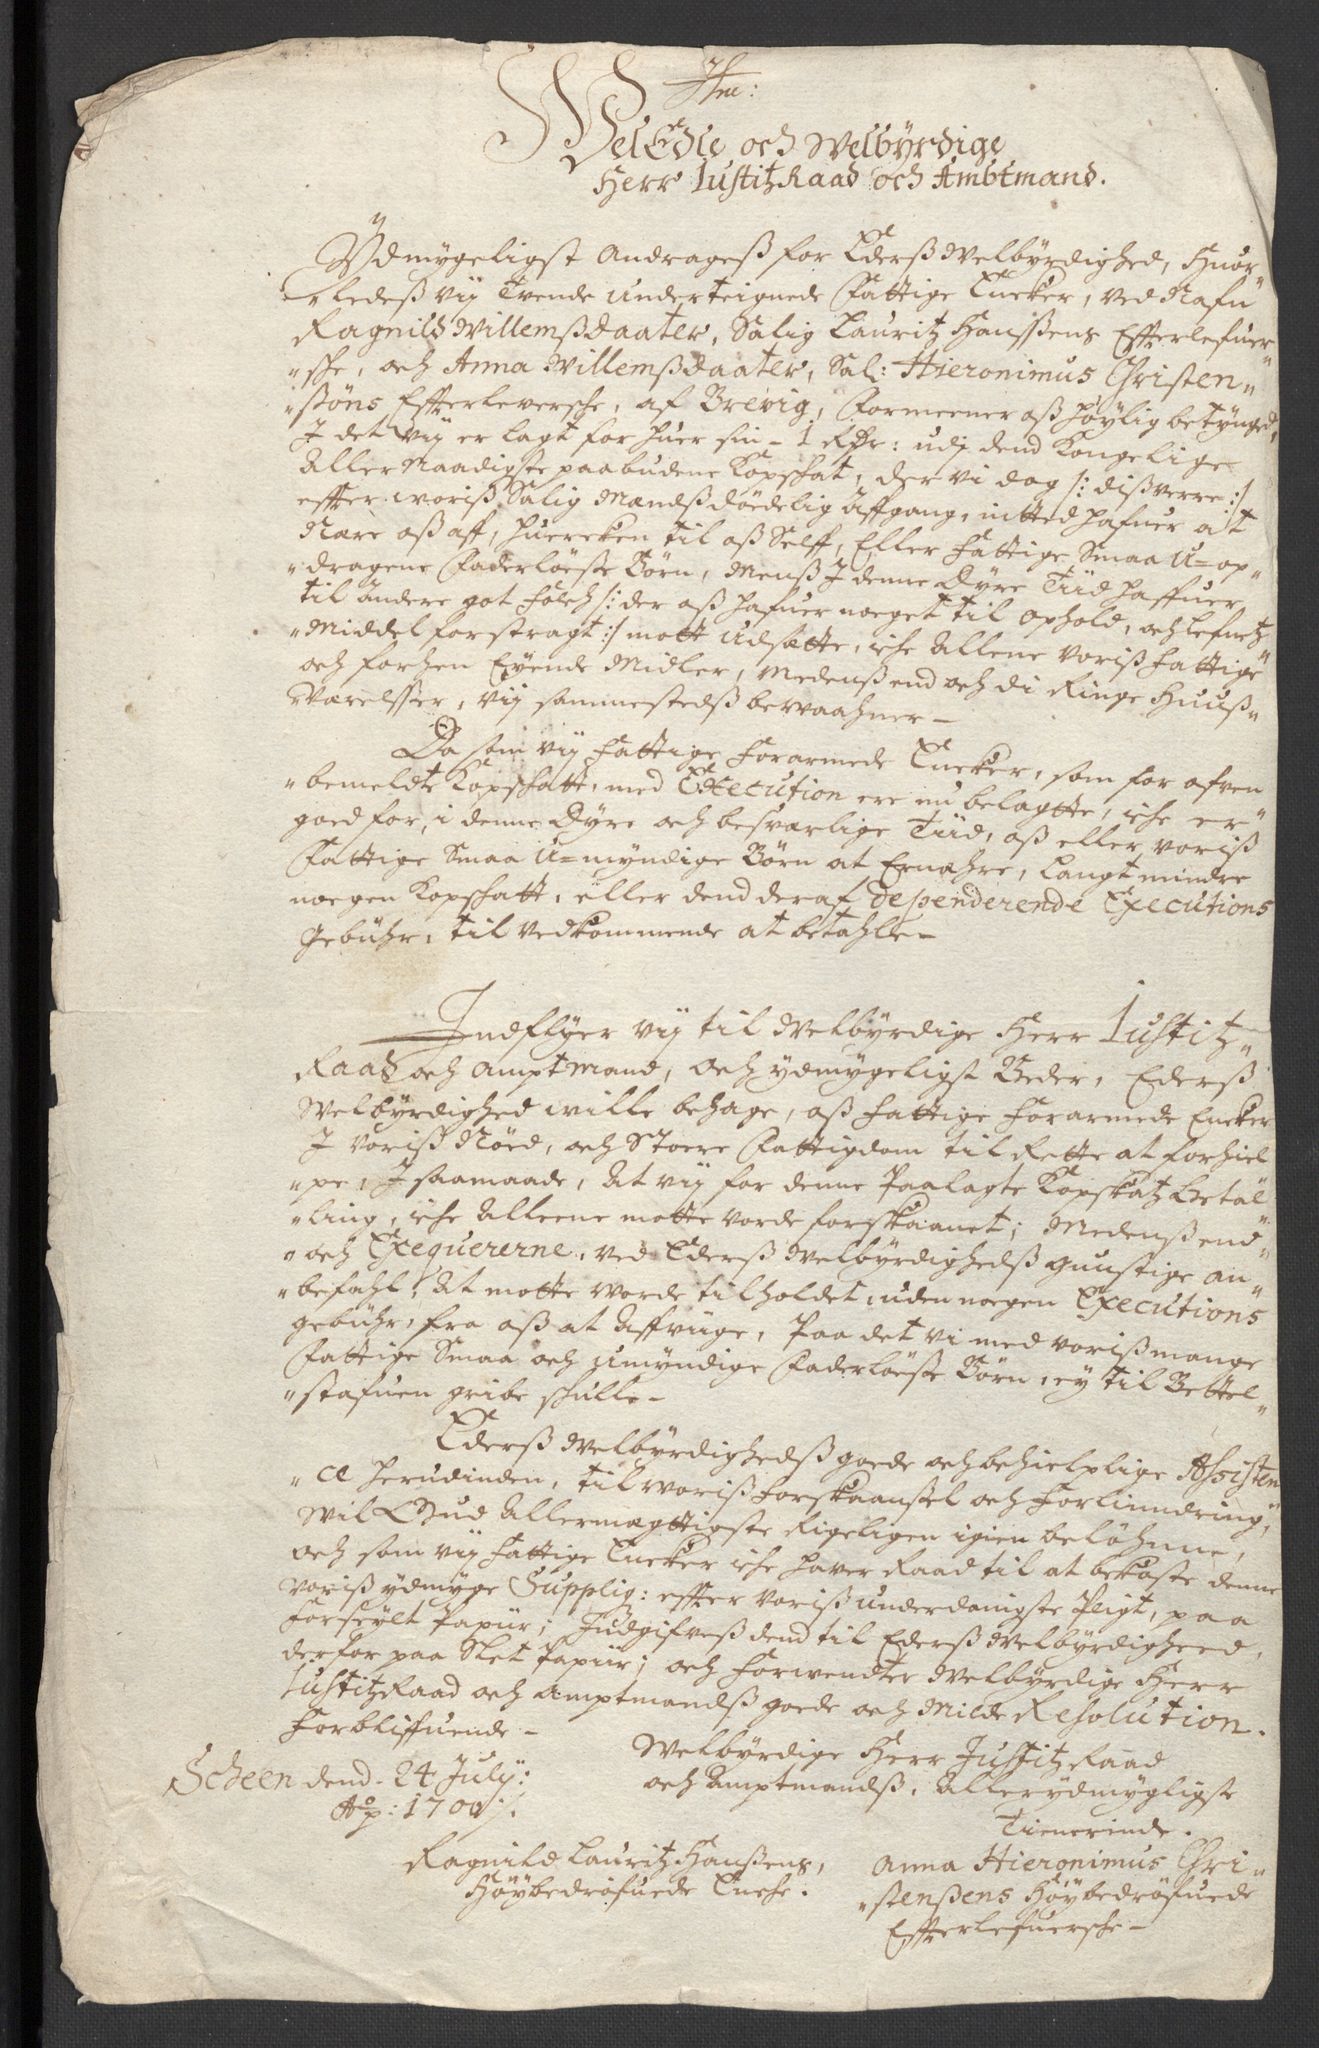 Hm:
WelEdle och Welbyrdige
Herr IustitzRaad och Ambtmand.
Ydmygeligst andrageß for Ederß Welbyrdighed, Huor„
„ledeß vij Tvende underteignede Fattige Encker, ved Nafn
Ragnild Willemßdaater, Salig Lauritz Hanssens Effterlefuer„
„sche, och Anna Willemßdaater, Sal: Hieronimus Christen„
„søns Effterleversche, af Brevig, Formeener oß høylig betynged,
J det vij er lagt for huer sin – 1 Rdr: udj dend Kongelige
Allernaadigste paabudene Kopschat, der vi dog /: dißverre :/
effter woriß Salig Mændß dödelig Affgang, intted hafuer at
Nære oß aff, huercken til oß Selff, Eller Fattige Smaa U=op„
„dragene Faderløeße Börn, Menß J denne Dyre Tiid haffuer
til andere got Folch /: der oß hafuer noeget til ophold, och lefnetz
„Middel forstragt :/ mott udsætte, iche Allene voriß Fattige
och forhen Eyende Midler, Medenß end och di Ringe Huuß„
Værelsser, vij sammestedß bewaahner –
Da som vij Fattige Forarmede Encker, som for ofven
„bemeldte Kopschatt, med Execution ere nu belagtte, iche er
goed for, i denne Dyre och besværlige Tiid, oß eller voriß
Fattige Smaa U=myndige Börn at Ernæhre, langt mindre
noegen Kopschatt, eller dend deraf dependerende Executions
Gebühr, til vedkommende at betahle –
Indflyer vij til Welbyrdige Herr Iustitz„
Raad och Amptmand, och ydmygeligst Beder, Ederß
Welbyrdighed wille behage, oß Fattige Forarmede Encker
J voriß Nöed, och Stoere Fattigdom til Rette at forhiel
„pe, J saamaade, At vij for denne Paalagte Kopskatz Betal„
„ling, iche Alleene motte vorde forskaanet; Medenß end„
„och Exequererne, ved Ederß Welbyrdighedß gunstige an„
„befahl, At motte worde tilholdet, uden noegen Executions
gebühr, fra oß at Affviige, Paa det vi med voriß mange
Fattige Smaa och umyndige Faderlöeße Börn, ey til Bettel„
„stafuen gribe schulle –
Ederß Welbyrdighedß goede och behielplige Assisten
„ce herudinden, til woriß Forskaansel och Forlinndring,
Wil Gud Allermægttigste Rigeligen igien belöhnne,
och som vij Fattige Encker iche haver Raad til at bekoste denne
voriß ydmyge Supplig: effter voriß underdanigste Pligt, paa
Forseylt Papiir; Indgifveß dend til Ederß Welbyrdigheed,
derfor paa Slet Papiir; och Forwendter Welbyrdige Herr
IustitzRaad och Amptmandß goede och Milde Resolution.
Forbliffuende –
Scheen dend. 24 July:
Ao: 1700 /.
Welbyrdige Herr JustitzRaad
och Amptmandß, Allerydmygligste
Tienerinde.
Ragnild Lauritz Hanßens,
Höybedröfuede Enche.
Anna Hieronimus Chri„
„stenßens Höybedröfuede
Effterlefuersche –